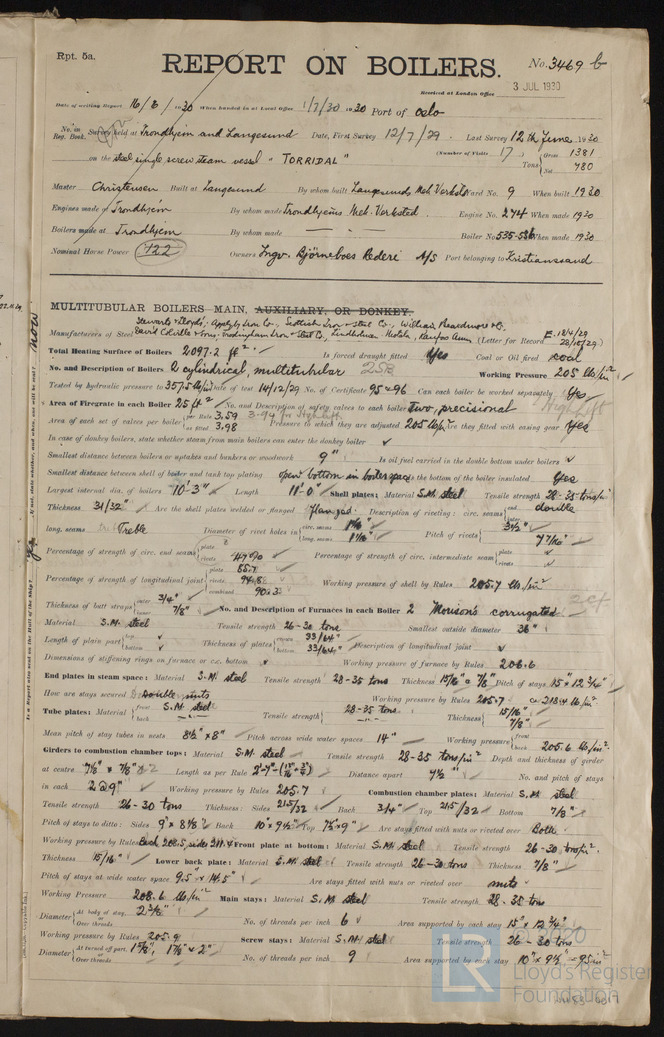 Rpt. 5a.
REPORT ON BOILERS.
No. 3469 b
Received at London Office
3 JUL 1930
Date of writing Report 16/6/1930 When handed in at Local Office 1/7/30 1930 Port of Oslo
No. in Reg. Book. Survey held at Trondhjem and Langesund Date, First Survey 12/7/29. Last Survey 12th June 1930
on the steel single screw steam vessel "TORRIDAL" (Number of Visits 17) Tons Gross 1381 Net 780
Master Christensen Built at Langesund By whom built Langesunds Mek. Verksted Yard No. 9 When built 1930
Engines made at Trondhjem By whom made Trondhjems Mek. Verksted. Engine No. 274 When made 1930
Boilers made at Trondhjem By whom made — " — Boiler No. 535-536 When made 1930
Nominal Horse Power 122 Owners Ingv. Björneboes Rederi A/S Port belonging to Kristianssand
MULTITUBULAR BOILERS MAIN, AUXILIARY, OR DONKEY.
Manufacturers of Steel Stewarts & Lloyds; Appleby Iron Co., Scottish Iron & Steel Co., William Beardmore & Co.
David Colville & Sons, Frodingham Iron & Steel Co, (Letter for Record E. 18/4/29 28/10/29)
Total Heating Surface of Boilers 2097.2 ft² Is forced draught fitted Yes Coal or Oil fired coal
No. and Description of Boilers 2 cylindrical, multitubular 2SB Working Pressure 205 lbs/in²
Tested by hydraulic pressure to 357.5 lbs/in² Date of test 14/12/29 No. of Certificate 95 & 96 Can each boiler be worked separately Yes
Area of Firegrate in each Boiler 25 ft² No. and Description of safety valves to each boiler Two, precisional High Lift
Area of each set of valves per boiler per Rule 3.59 as fitted 3.98 Pressure to which they are adjusted 205 lbs/in² Are they fitted with easing gear Yes
In case of donkey boilers, state whether steam from main boilers can enter the donkey boiler ✓
Smallest distance between boilers or uptakes and bunkers or woodwork 9" Is oil fuel carried in the double bottom under boilers ✓
Smallest distance between shell of boiler and tank top plating open bottom in boilerspace Is the bottom of the boiler insulated Yes
Largest internal dia. of boilers 10'-3" Length 11'-0" Shell plates: Material S.M. steel Tensile strength 28-35 tons/in²
Thickness 31/32" Are the shell plates welded or flanged flanged. Description of riveting: circ. seams end double
long. seams Treble Diameter of rivet holes in circ. seams 1 1/16" long. seams 1 1/16" Pitch of rivets 3 1/2" 7 7/16"
Percentage of strength of circ. end seams plate rivets 47% Percentage of strength of circ. intermediate seam plate ✓ rivets ✓
Percentage of strength of longitudinal joint plate 85.7 rivets 94.8 combined 90.3 Working pressure of shell by Rules 205.7 lbs/in²
Thickness of butt straps outer 3/4" inner 7/8" No. and Description of Furnaces in each Boiler 2 Morison's corrugated 2cf
Material S.M. steel Tensile strength 26-30 tons Smallest outside diameter 36"
Length of plain part top ✓ bottom ✓ Thickness of plates crown 33/64" bottom 33/64" Description of longitudinal joint ✓
Dimensions of stiffening rings on furnace or c.c. bottom ✓ Working pressure of furnace by Rules 208.6
End plates in steam space: Material S.M. steel Tensile strength 28-35 tons Thickness 15/16" & 7/8" Pitch of stays 15" x 12 3/4"
How are stays secured Double nuts Working pressure by Rules 205.7 & 218.4 lbs/in²
Tube plates: Material front S.M. steel back — " — Tensile strength 28-35 tons — " — Thickness 15/16" 7/8"
Mean pitch of stay tubes in nests 8 1/2" x 8" Pitch across wide water spaces 14" Working pressure front back 205.6 lbs/in²
Girders to combustion chamber tops: Material S.M. steel Tensile strength 28-35 tons/in² Depth and thickness of girder
at centre 7 1/8" x 7/8" x 2 Length as per Rule Distance apart 7 1/2" No. and pitch of stays
in each 2 @ 9" Working pressure by Rules 205.7 Combustion chamber plates: Material S.M. steel
Tensile strength 26-30 tons Thickness: Sides 21.5/32 Back 3/4" Top 21.5/32 Bottom 7/8"
Pitch of stays to ditto: Sides 9" x 8 5/8 Back 10" x 9 1/2" Top 7 1/2" x 9" Are stays fitted with nuts or riveted over Both
Working pressure by Rules Back 208.5, sides 211.4 Front plate at bottom: Material S.M. steel Tensile strength 26-30 tons/in².
Thickness 15/16" Lower back plate: Material S.M. steel Tensile strength 26-30 tons Thickness 7/8"
Pitch of stays at wide water space 9.5" x 14.5" Are stays fitted with nuts or riveted over nuts
Working Pressure 208.6 lbs/in² Main stays: Material S.M. steel Tensile strength 28-35 tons
Diameter At body of stay, or Over threads 2 3/8" No. of threads per inch 6 Area supported by each stay 15" x 12 3/4"
Working pressure by Rules 205.9 Screw stays: Material S.M. steel Tensile strength 26-30 tons
Diameter At turned off part, or Over threads 1 5/8", 1 7/8" & 2" No. of threads per inch 9 Area supported by each stay 10" x 9 1/2" = 95 in²
Lloyd's Register
Foundation